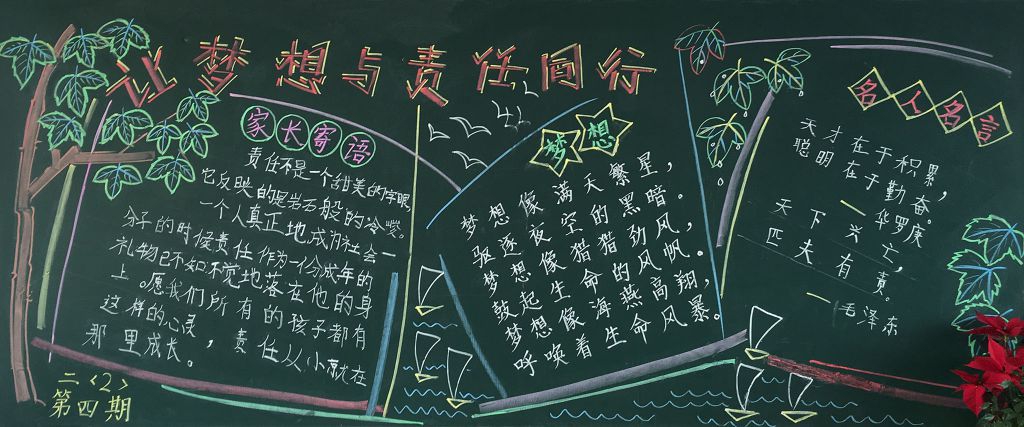 让梦想与责任同行
家长寄语
责任不是一个甜美的字眼,
它反映的是岩石般的冷峻。
一个人真正地成为社会一
分子的时候责任作为一份成年的
礼物已不知不觉地落在他的身
上。愿我们所有的孩子都有
这样的心灵，责任从小就在
那里成长。
二<2>
第四期
梦想
梦想像满天繁星，
驱逐夜空的黑暗。
梦想像猎猎劲风，
鼓起生命的风帆。
梦想像海燕高翔，
呼唤着生命风暴。
名人名言
天才在于积累，
聪明在于勤奋。
一华罗庚
天下兴亡，
匹夫有责。
一毛泽东